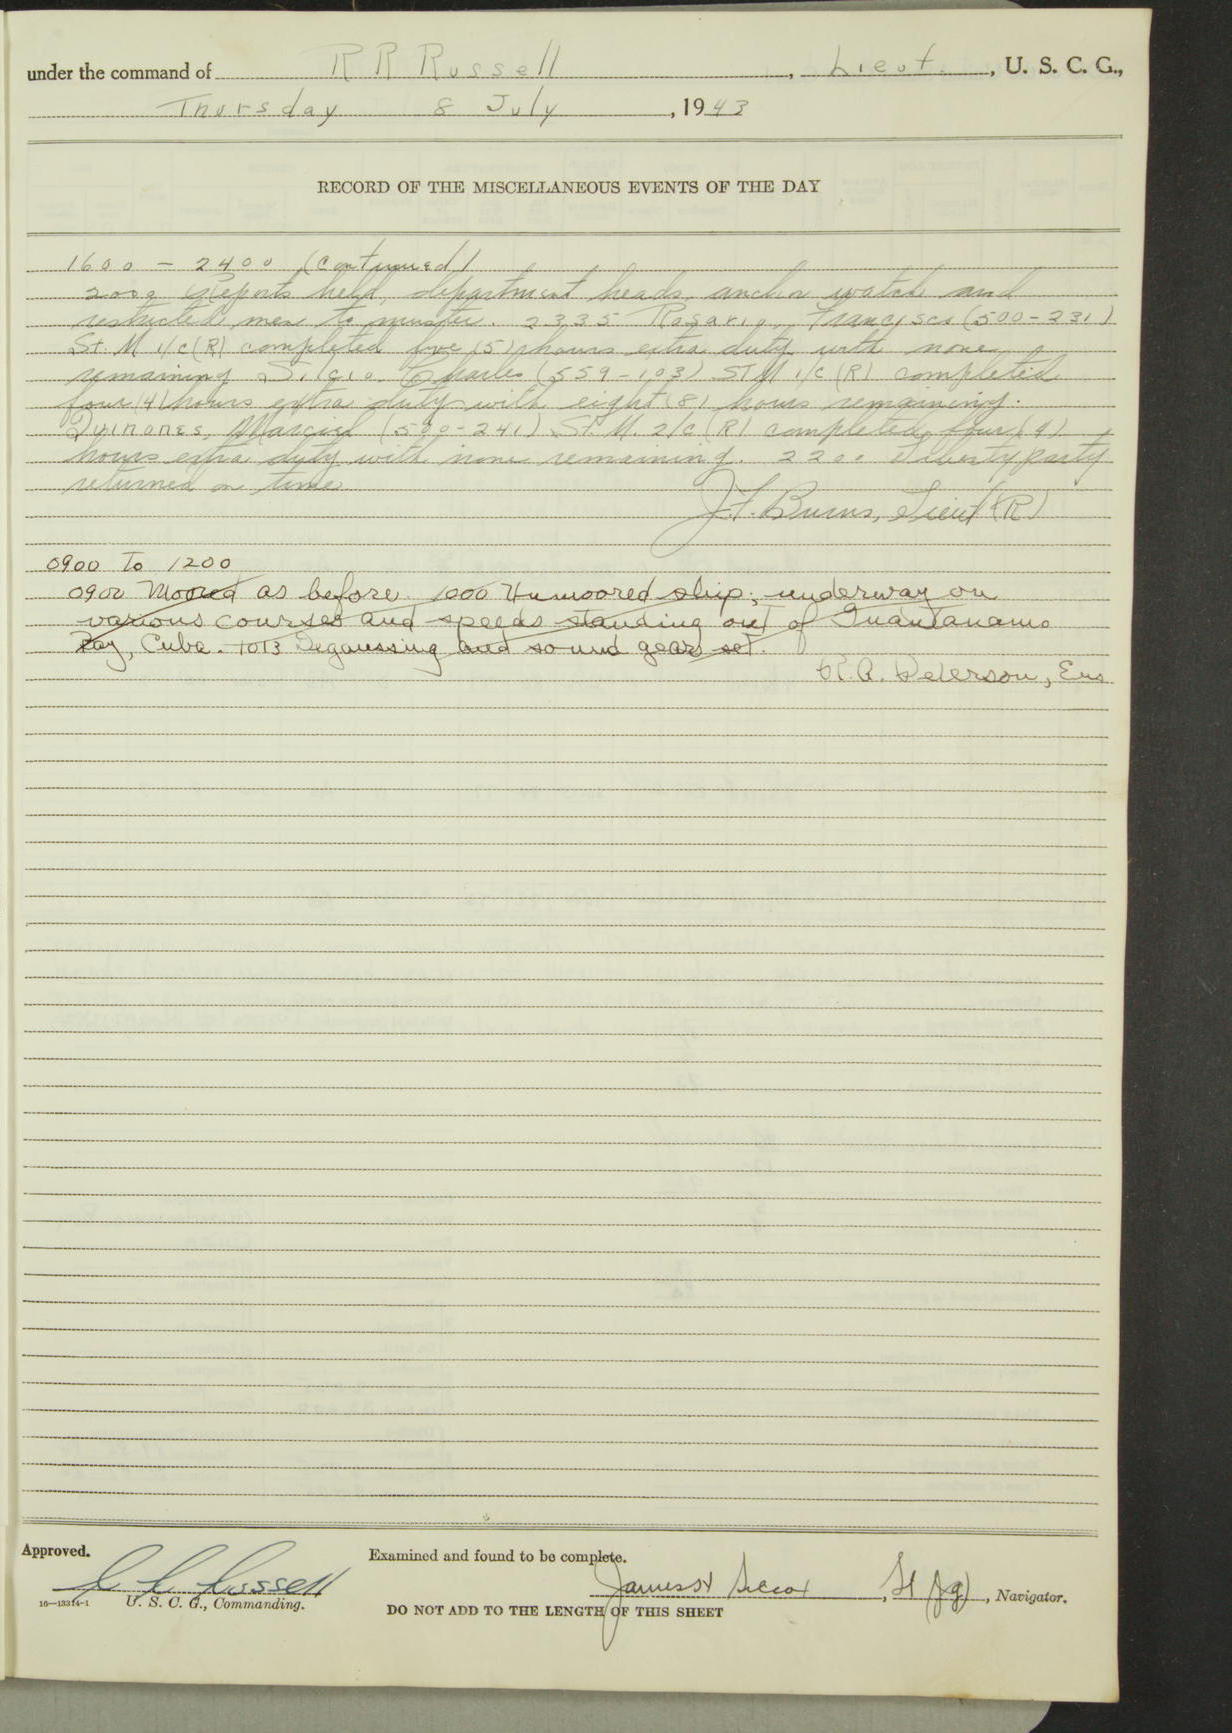 under the command of R R Russell, Lieut., U. S. C. G.,
Thursday 8 July, 1943
RECORD OF THE MISCELLANEOUS EVENTS OF THE DAY
1600 - 2400 (Continued)
2000 Reports held, department heads, anchor watch and
restricted men to muster. 2335 Rosario, Francisco (500-231)
St. M 1/c (R) completed five (5) hours extra duty with none
remaining. Charles (559-103) STM 1/c (R) completed
four (4) hours extra duty with eight (8) hours remaining.
Quinones, Marcial (500-241) St. M. 2/c (R) completed four (4)
hours extra duty with none remaining. 2200 Liberty party
returned on time
J.F. Burns, Lieut (R)
0900 To 1200
0900 Moored as before. 1000 Unmoored ship; underway on
various courses and speeds standing out of Guantanamo
Bay, Cuba. 1013 Degaussing and sound gear set.
R. A. Peterson, Ens
Approved.
Examined and found to be complete.
R R Russell
James, Lt (jg), Navigator.
16-13314-1 U. S. C. G., Commanding.
DO NOT ADD TO THE LENGTH OF THIS SHEET